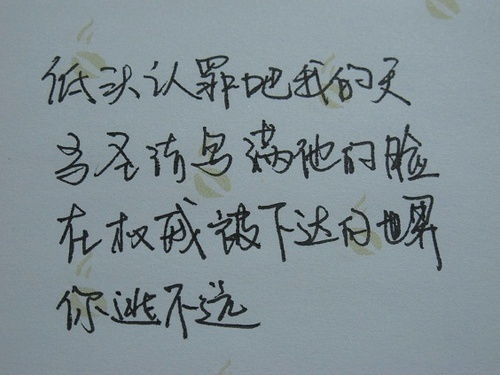 低头认罪吧我的天
当圣写满他的脸
在权威被下达的世界
你逃不远